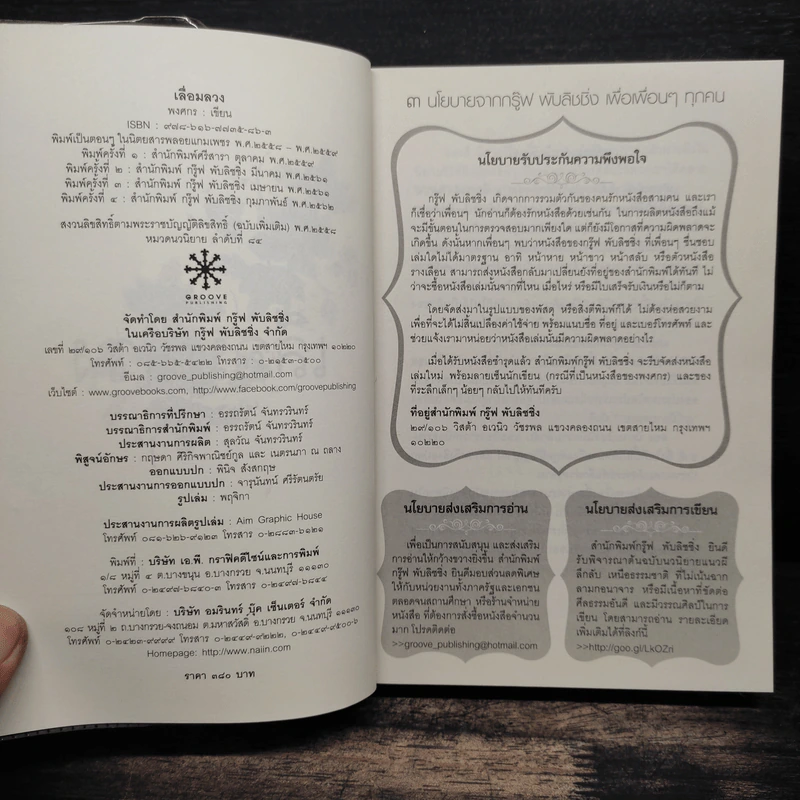 เลื่อมลวง
พงศกร : เขียน
ISBN : ๙๗๘-๖๑๖-๗๗๓๕-๘๖-๓
พิมพ์เป็นตอนๆ ในนิตยสารพลอยแกมเพชร พ.ศ.๒๕๕๘ – พ.ศ.๒๕๕๙
พิมพ์ครั้งที่ ๑ : สำนักพิมพ์ศรีสารา ตุลาคม พ.ศ.๒๕๕๙
พิมพ์ครั้งที่ ๒ : สำนักพิมพ์ กรู๊ฟ พับลิชชิ่ง มีนาคม พ.ศ.๒๕๖๑
พิมพ์ครั้งที่ ๓ : สำนักพิมพ์ กรู๊ฟ พับลิชชิ่ง เมษายน พ.ศ.๒๕๖๑
พิมพ์ครั้งที่ ๔ : สำนักพิมพ์ กรู๊ฟ พับลิชชิ่ง กุมภาพันธ์ พ.ศ.๒๕๖๒
สงวนลิขสิทธิ์ตามพระราชบัญญัติลิขสิทธิ์ (ฉบับเพิ่มเติม) พ.ศ.๒๕๕๘
หมวดนวนิยาย ลำดับที่ ๘๔
GROOVE
PUBLISHING
จัดทำโดย สำนักพิมพ์ กรู๊ฟ พับลิชชิ่ง
ในเครือบริษัท กรู๊ฟ พับลิชชิ่ง จำกัด
เลขที่ ๒๙/๑๐๖ วิสต้า อเวนิว วัชรพล แขวงคลองถนน เขตสายไหม กรุงเทพฯ ๑๐๒๒๐
โทรศัพท์ : ๐๘๕-๖๖๕-๕๔๒๒ โทรสาร : ๐-๒๑๕๓-๐๕๐๐
อีเมล : groove_publishing@hotmail.com
เว็บไซต์ : www.groovebooks.com, http://www.facebook.com/groovepublishing
บรรณาธิการที่ปรึกษา : อรรถรัตน์ จันทรวรินทร์
บรรณาธิการสำนักพิมพ์ : อรรถรัตน์ จันทรวรินทร์
ประสานงานการผลิต : สุลวัณ จันทรวรินทร์
พิสูจน์อักษร : กฤษดา ศิริกิจพาณิชย์กูล และ เนตรนภา ณ ถลาง
ออกแบบปก : พินิจ สังสกฤษ
ประสานงานการออกแบบปก : จารุนันทน์ ศรีรัตนตรัย
รูปเล่ม : พฤจิกา
ประสานงานการผลิตรูปเล่ม : Aim Graphic House
โทรศัพท์ ๐๘๑-๖๒๖-๙๑๒๓ โทรสาร ๐-๒๘๘๓-๖๑๒๑
พิมพ์ที่ : บริษัท เอ.พี. กราฟิคดีไซน์และการพิมพ์
๑/๘ หมู่ที่ ๔ ต.บางขนุน อ.บางกรวย จ.นนทบุรี ๑๑๑๓๐
โทรศัพท์ ๐-๒๔๙๗-๖๘๔๐-๓ โทรสาร ๐-๒๔๙๗-๖๘๔๔
จัดจำหน่ายโดย : บริษัท อมรินทร์ บุ๊ค เซ็นเตอร์ จำกัด
๑๐๘ หมู่ที่ ๒ ถ.บางกรวย-จงถนอม ต.มหาสวัสดิ์ อ.บางกรวย จ.นนทบุรี ๑๑๑๓๐
โทรศัพท์ ๐-๒๔๒๓-๙๙๙๙ โทรสาร ๐-๒๔๔๙-๙๒๒๒, ๐-๒๔๔๙-๙๕๐๐-๖
Homepage: http://www.naiin.com
ราคา ๓๘๐ บาท
๓ นโยบายจากกรู๊ฟ พับลิชชิ่ง เพื่อเพื่อนๆ ทุกคน
นโยบายรับประกันความพึงพอใจ
กรู๊ฟ พับลิชชิ่ง เกิดจากการรวมตัวกันของคนรักหนังสือสามคน และเรา
ก็เชื่อว่าเพื่อนๆ นักอ่านก็ต้องรักหนังสือด้วยเช่นกัน ในการผลิตหนังสือถึงแม้
จะมีขั้นตอนในการตรวจสอบมากเพียงใด แต่ก็ยังมีโอกาสที่ความผิดพลาดจะ
เกิดขึ้น ดังนั้นหากเพื่อนๆ พบว่าหนังสือของกรู๊ฟ พับลิชชิ่ง ที่เพื่อนๆ ชื่นชอบ
เล่มใดไม่ได้มาตรฐาน อาทิ หน้าหาย หน้าขาว หน้าสลับ หรือตัวหนังสือ
รางเลือน สามารถส่งหนังสือกลับมาเปลี่ยนยังที่อยู่ของสำนักพิมพ์ได้ทันที ไม่
ว่าจะซื้อหนังสือเล่มนั้นจากที่ไหน เมื่อไหร่ หรือมีใบเสร็จรับเงินหรือไม่ก็ตาม
โดยจัดส่งมาในรูปแบบของพัสดุ หรือสิ่งตีพิมพ์ก็ได้ ไม่ต้องห่อสวยงาม
เพื่อที่จะได้ไม่สิ้นเปลืองค่าใช้จ่าย พร้อมแนบชื่อ ที่อยู่ และเบอร์โทรศัพท์ และ
ช่วยแจ้งเรามาหน่อยว่าหนังสือเล่มนั้นมีความผิดพลาดอย่างไร
เมื่อได้รับหนังสือชำรุดแล้ว สำนักพิมพ์กรู๊ฟ พับลิชชิ่ง จะรีบจัดส่งหนังสือ
เล่มใหม่ พร้อมลายเซ็นนักเขียน (กรณีที่เป็นหนังสือของพงศกร) และของ
ที่ระลึกเล็กๆ น้อยๆ กลับไปให้ทันทีครับ
ที่อยู่สำนักพิมพ์ กรู๊ฟ พับลิชชิ่ง
๒๙/๑๐๖ วิสต้า อเวนิว วัชรพล แขวงคลองถนน เขตสายไหม กรุงเทพฯ
๑๐๒๒๐
นโยบายส่งเสริมการอ่าน
เพื่อเป็นการสนับสนุน และส่งเสริม
การอ่านให้กว้างขวางยิ่งขึ้น สำนักพิมพ์
กรู๊ฟ พับลิชชิ่ง ยินดีมอบส่วนลดพิเศษ
ให้กับหน่วยงานทั้งภาครัฐและเอกชน
ตลอดจนสถานศึกษา หรือร้านจำหน่าย
หนังสือ ที่ต้องการสั่งซื้อหนังสือจำนวน
มาก โปรดติดต่อ
>>groove_publishing@hotmail.com
นโยบายส่งเสริมการเขียน
สำนักพิมพ์กรู๊ฟ พับลิชชิ่ง ยินดี
รับพิจารณาต้นฉบับนวนิยายแนวผี
ลึกลับ เหนือธรรมชาติ ที่ไม่เน้นฉาก
ลามกอนาจาร หรือมีเนื้อหาที่ขัดต่อ
ศีลธรรมอันดี และมีวรรณศิลป์ในการ
เขียน โดยสามารถอ่าน รายละเอียด
เพิ่มเติมได้ที่ลิงก์นี้
>>http://goo.gl/LkOZri